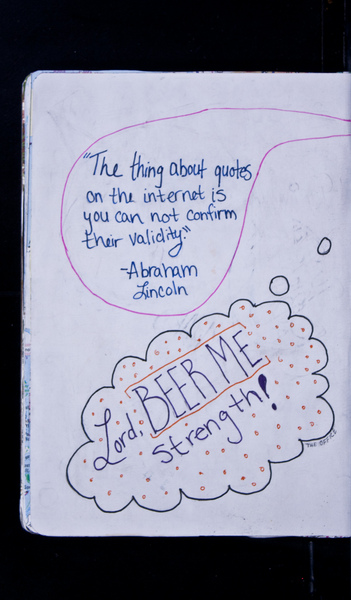 "The thing about quotes
on the internet is
you can not confirm
their validity."
-Abraham
Lincoln
Lord, BEER ME
strength!
THE OFFICE